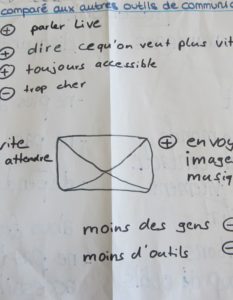 comparé aux autres outils de communi
⊕ parler Live
⊕ dire cequ'on veut plus vit
⊕ toujours accessible
⊖ trop cher
vite
attendre
⊕ envoy
image
musiq
moins des gens ⊖
moins d'outils ⊖